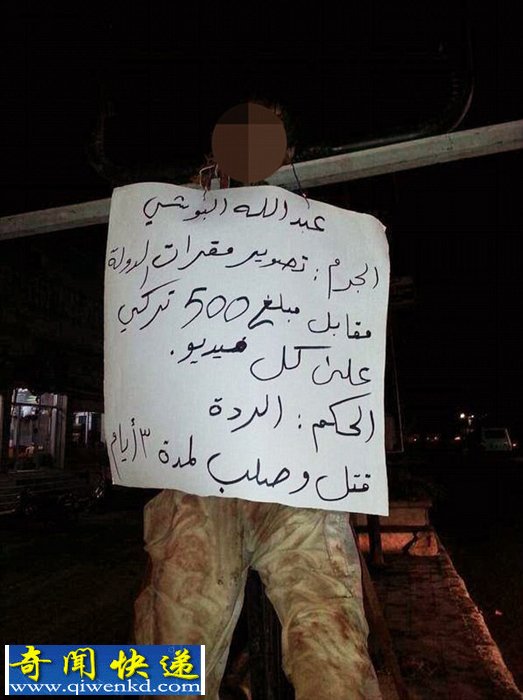 عبد الله البوشي
الجرم : تصوير مقرات الدولة
مقابل مبلغ 500 تركي
على كل فيديو.
الحكم : الردة
قتل وصلب لمدة ٣ أيام
奇闻快递
www.qiwenkd.com